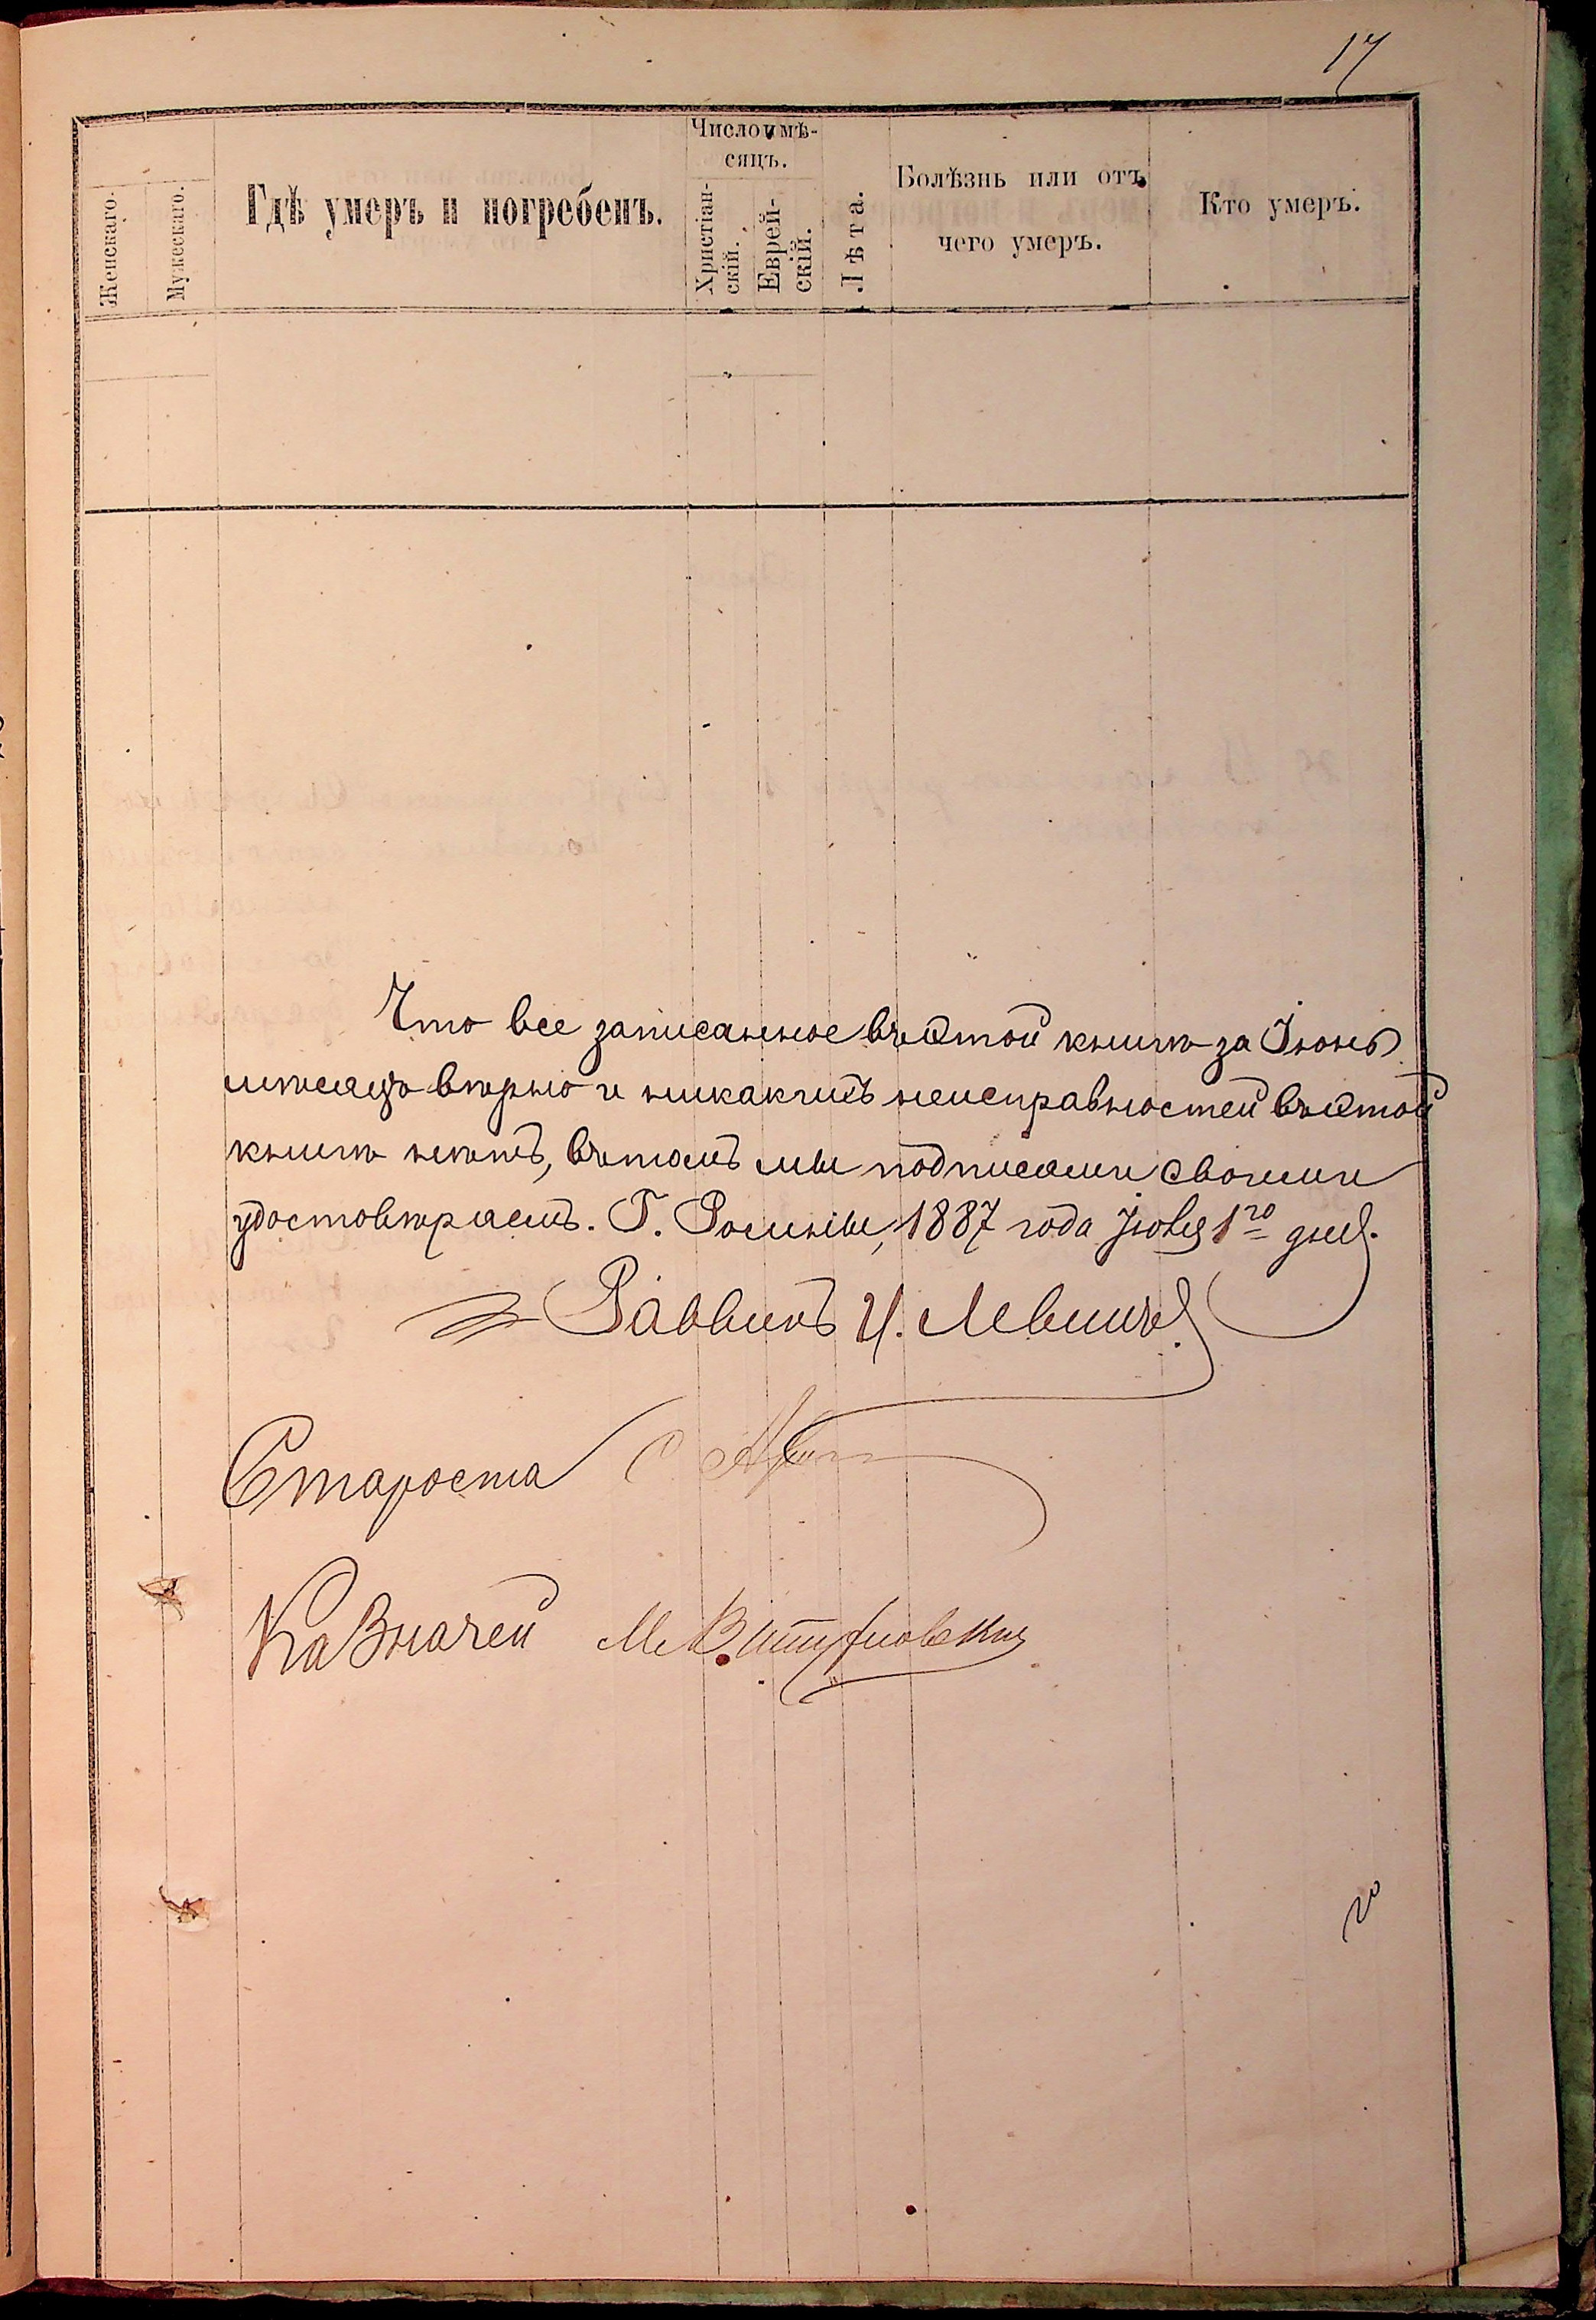 17
Число и мѣ-
сяцъ.
Женскаго.
Мужескаго.
Гдѣ умеръ и погребенъ.
Христіан-
скій.
Еврей-
скій.
Лѣта.
Болѣзнь или отъ
чего умеръ.
Кто умеръ.
Что все записанное въ этой книгѣ за Іюнь
мѣсяцъ вѣрно и никакихъ неисправностей въ этой
книгѣ нѣтъ, въ томъ мы подписями своими
удостовѣряемъ. Г. Ромны, 1887 года Іюля 1го дня.
Раввинъ И. Левинъ
Староста С.
Казначей М.